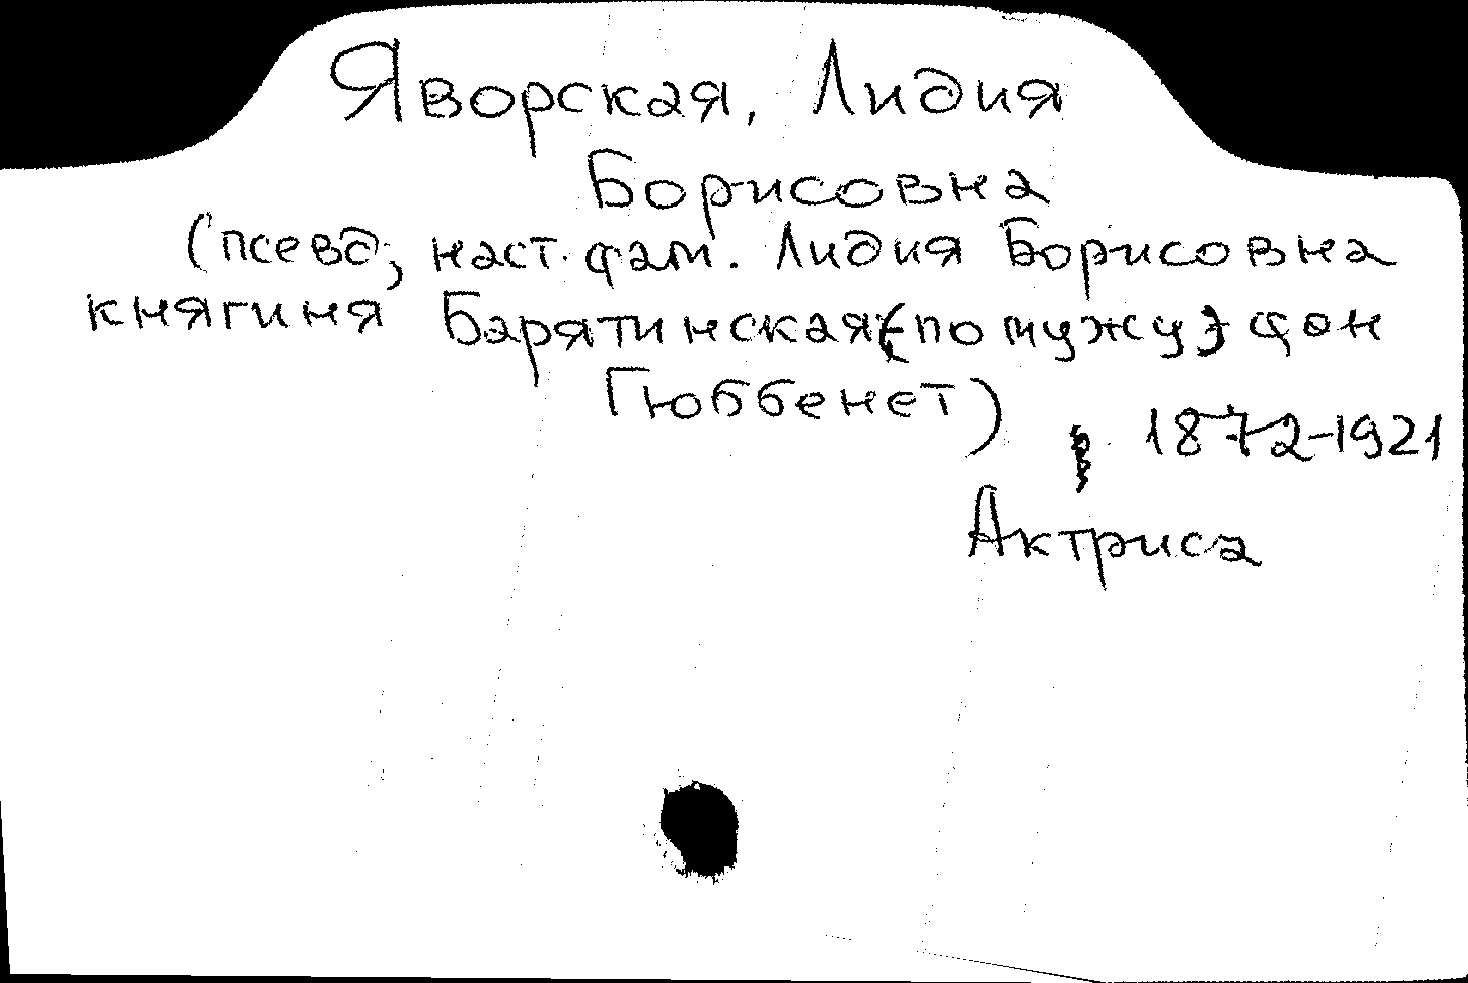 Яворская, Лидия
Борисовна
(псевд, наст. фам. Лидия Борисовна
княгиня Барятинская (по мужу) фон
Гюббенет)
1872-1921
Актриса